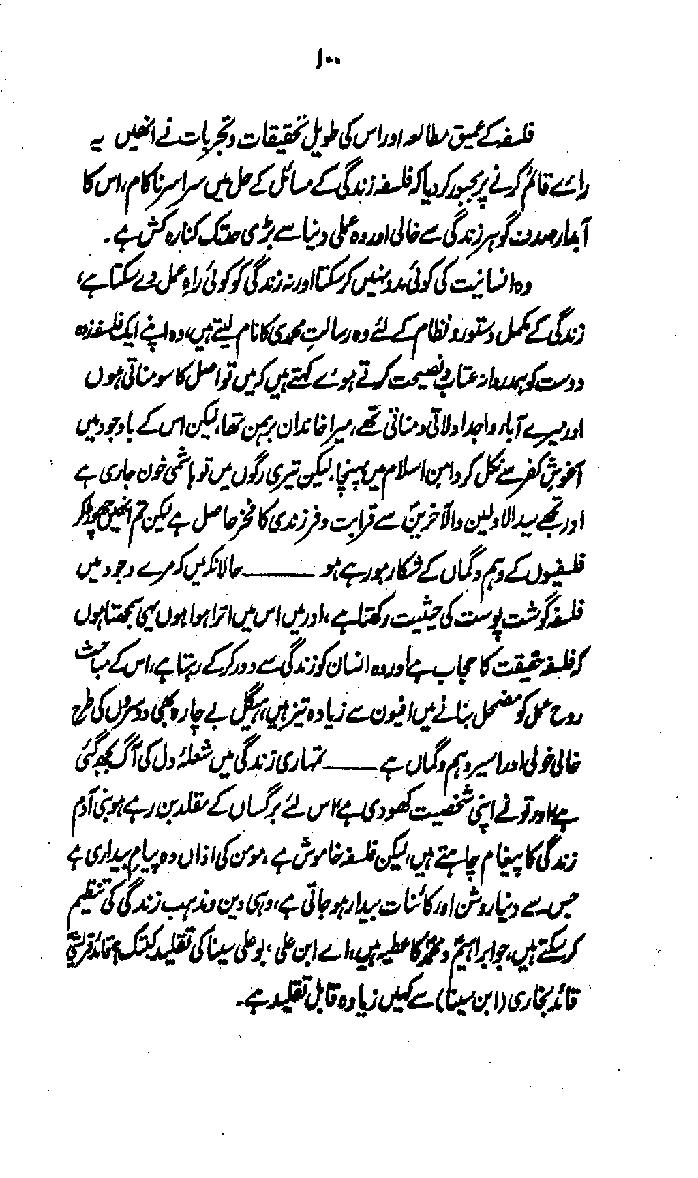 ۱۰۰
فلسفہ کے عمیق مطالعہ اور اس کی طویل تحقیقات و تجربات نے انھیں یہ
رائے قائم کرنے پر مجبور کر دیا کہ فلسفہ زندگی کے مسائل کے حل میں سراسر ناکام، اس کا
آبدار صدف گوہر زندگی سے خالی اور وہ عملی دنیا سے بڑی حد تک کنارہ کش ہے۔
وہ انسانیت کی کوئی مدد نہیں کر سکتا اور نہ زندگی کو کوئی راہ عمل دے سکتا ہے،
زندگی کے مکمل دستور و نظام کے لئے وہ رسالت محمدی کا نام لیتے ہیں، وہ اپنے ایک فلسفہ زدہ
دوست کو ہمدردانہ عتاب و نصیحت کرتے ہوئے کہتے ہیں کہ میں تو اصل کا سومناتی ہوں
اور میرے آباء و اجداد لاتی و مناتی تھے، میرا خاندان برہمن تھا، لیکن اس کے باوجود میں
آغوش کفر سے نکل کر دامن اسلام میں پہنچا، لیکن تیری رگوں میں تو ہاشمی خون جاری ہے
اور تجھے سید الاولین والآخرین سے قرابت و فرزندی کا فخر حاصل ہے لیکن تم انھیں چھوڑ کر
فلسفیوں کے وہم و گماں کے شکار ہو رہے ہو ــــــــ حالانکہ میں کہ مرے وجود میں
فلسفہ گوشت پوست کی حیثیت رکھتا ہے، اور میں اس میں اترا ہوا ہوں یہی سمجھتا ہوں
کہ فلسفہ حقیقت کا حجاب ہے اور وہ انسان کو زندگی سے دور کر کے رہتا ہے، اس کے مباحث
روح عمل کو مضمحل بنانے میں افیون سے زیادہ تیز ہیں، ہیگل بے چارہ بھی دوسروں کی طرح
خالی خولی اور اسیر وہم و گماں ہے ــــــــ تمہاری زندگی میں شعلۂ دل کی آگ بجھ گئی
ہے اور تو نے اپنی شخصیت کھو دی ہے، اس لئے برگساں کے مقلد بن رہے ہو بنی آدم
زندگی کا پیغام چاہتے ہیں، لیکن فلسفہ خاموش ہے، مومن کی اذاں وہ پیام بیداری ہے
جس سے دنیا روشن اور کائنات بیدار ہو جاتی ہے، وہی دین و مذہب زندگی کی تنظیم
کر سکتے ہیں، جو ابراہیمؑ و محمدؐ کا عطیہ ہیں، اے ابن علی، بو علی سینا کی تقلید کب تک؟ قائد قریشی
قائد بخاری (ابن سینا) سے کہیں زیادہ قابل تقلید ہے۔